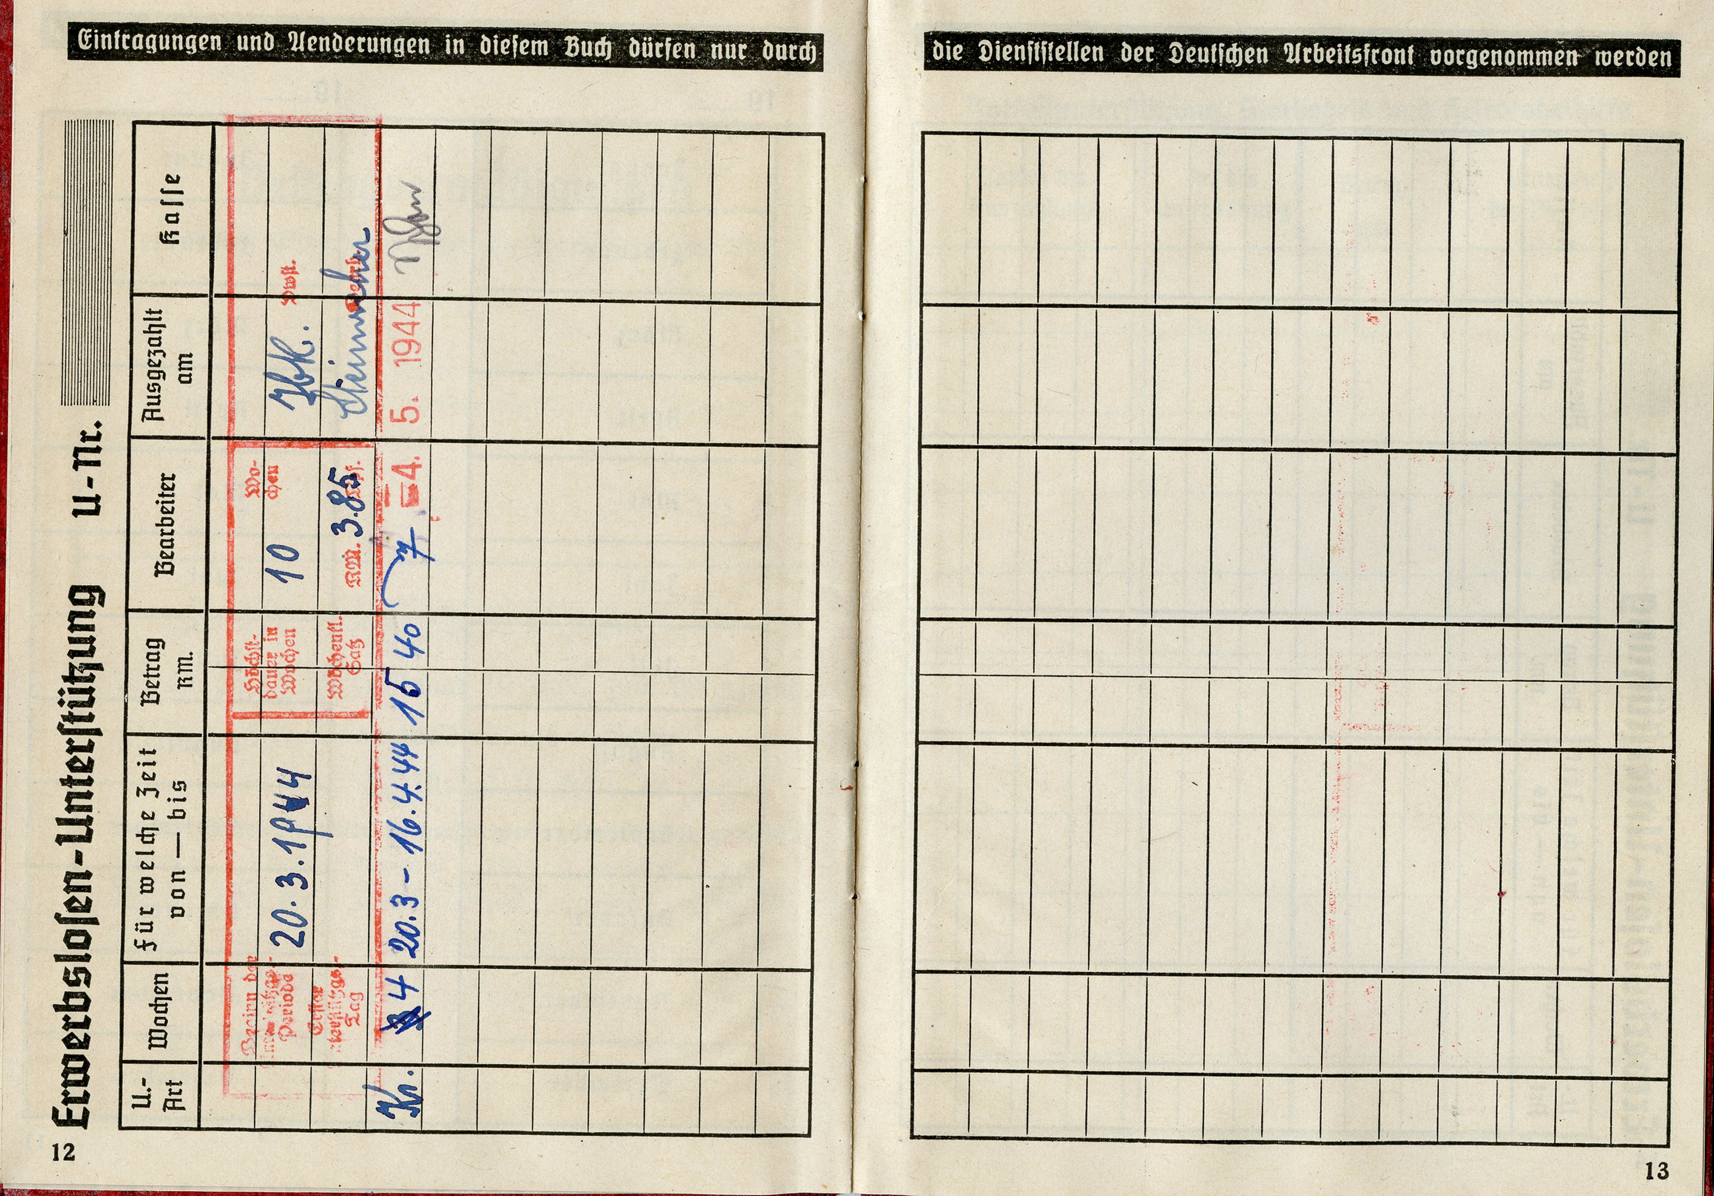 Eintragungen und Aenderungen in diesem Buch dürfen nur durch
die Dienststellen der Deutschen Arbeitsfront vorgenommen werden
Erwerbslosen-Unterstützung U-Nr.
U.-
Art
Wochen
Für welche Zeit
von — bis
Betrag
RM.
Bearbeiter
Ausgezahlt
am
Kasse
Beginn der
Periode
20.3.1944
Höchst-
dauer in
Wochen
10
Wo-
chen
Erster
Tag
Wöchentl.
Satz
RM. 3.85
Kr. 4 20.3 - 16.4.44 15 40
4. 5. 1944
12
13